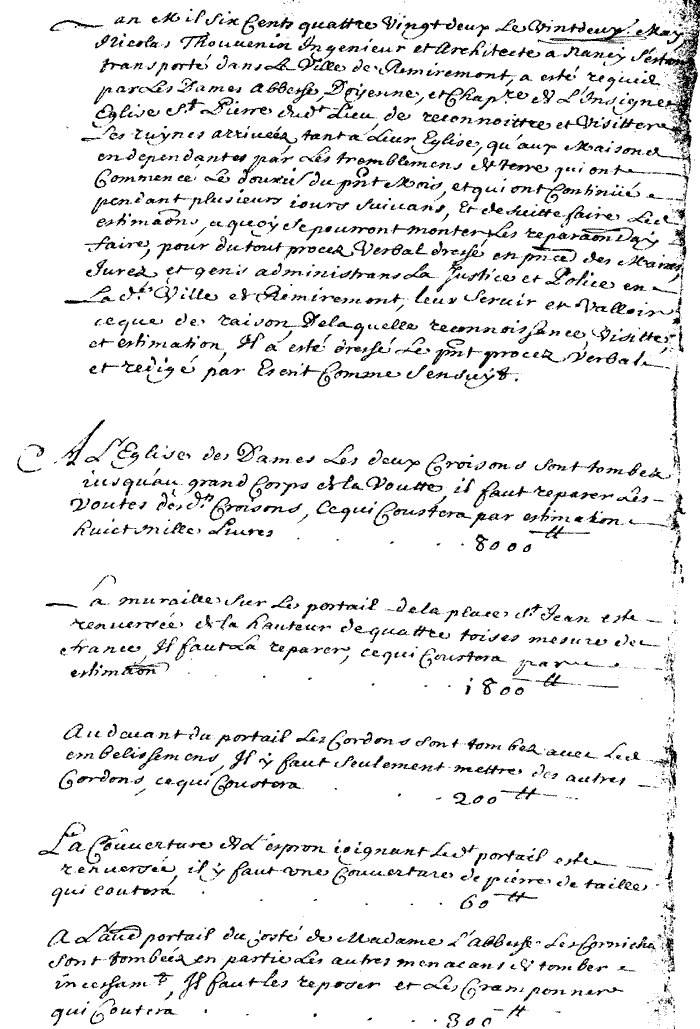 Lan Mil Six Cents quattre vingt deux Le vint deux May
Nicolas Thouvenin Ingenieur et Architecte a Nancy S'estant
transporté dans La Ville de Remiremont, a esté requis
par Les Dames Abbesse, Doyenne, et Chapre de L'Insigne
Eglise St Pierre dudt Lieu, de reconnoittre et Visitter
Les ruynes arrivées, tant a Leur Eglise, qu'aux Maisons
en dependantes par Les tremblemens de terre qui ont
Commencé Le douziè du pnt Mois, et qui ont Continüé
pendant plusieurs iours suivans, Et de suitte faire Les
estimaons, a quoy se pourront monter Les reparaons d'y
faire, pour du tout procez Verbal dressé en pnce des Maire,
Jurez et gens administrans La Justice et Police en
La dte Ville de Remiremont, leur Servir et Valloir
ce que de raison, De laquelle reconnoissance, Visitte,
et estimation, Il a esté dressé Le pnt procez Verbal
et redigé par Escrit Comme Sensuyt.
A L'Eglise des Dames Les deux Croisons sont tombez
iusqu'au grand Corps de la Voutte, il faut reparer Les
Voutes desdts Croisons, Ce qui Coustera par estimation
huict Mille Livres . . . . 8000 tt
La muraille sur Le portail de la place St Jean est
renversée de la hauteur de quattre toises mesure de
france, Il faut La reparer, ce qui Coustera par
estimaon . . . . 1800 tt
Au devant du portail Les Cordons sont tombez avec Les
embelissemens, Il y faut seulement mettre des autres
Cordons, ce qui Coustera . . . 200 tt
La Couverture de L'espron ioignant Ledt portail est
renversée, il y faut une Couverture de pierre de taille
qui coutera . . . 60 tt
A L'aud portail du costé de Madame L'abbesse Les Corniches
sont tombées en partie Les autres menacans de tomber
incessamt, Il faut les reposer et Les Cramponner
qui Coutera . . . 300 tt